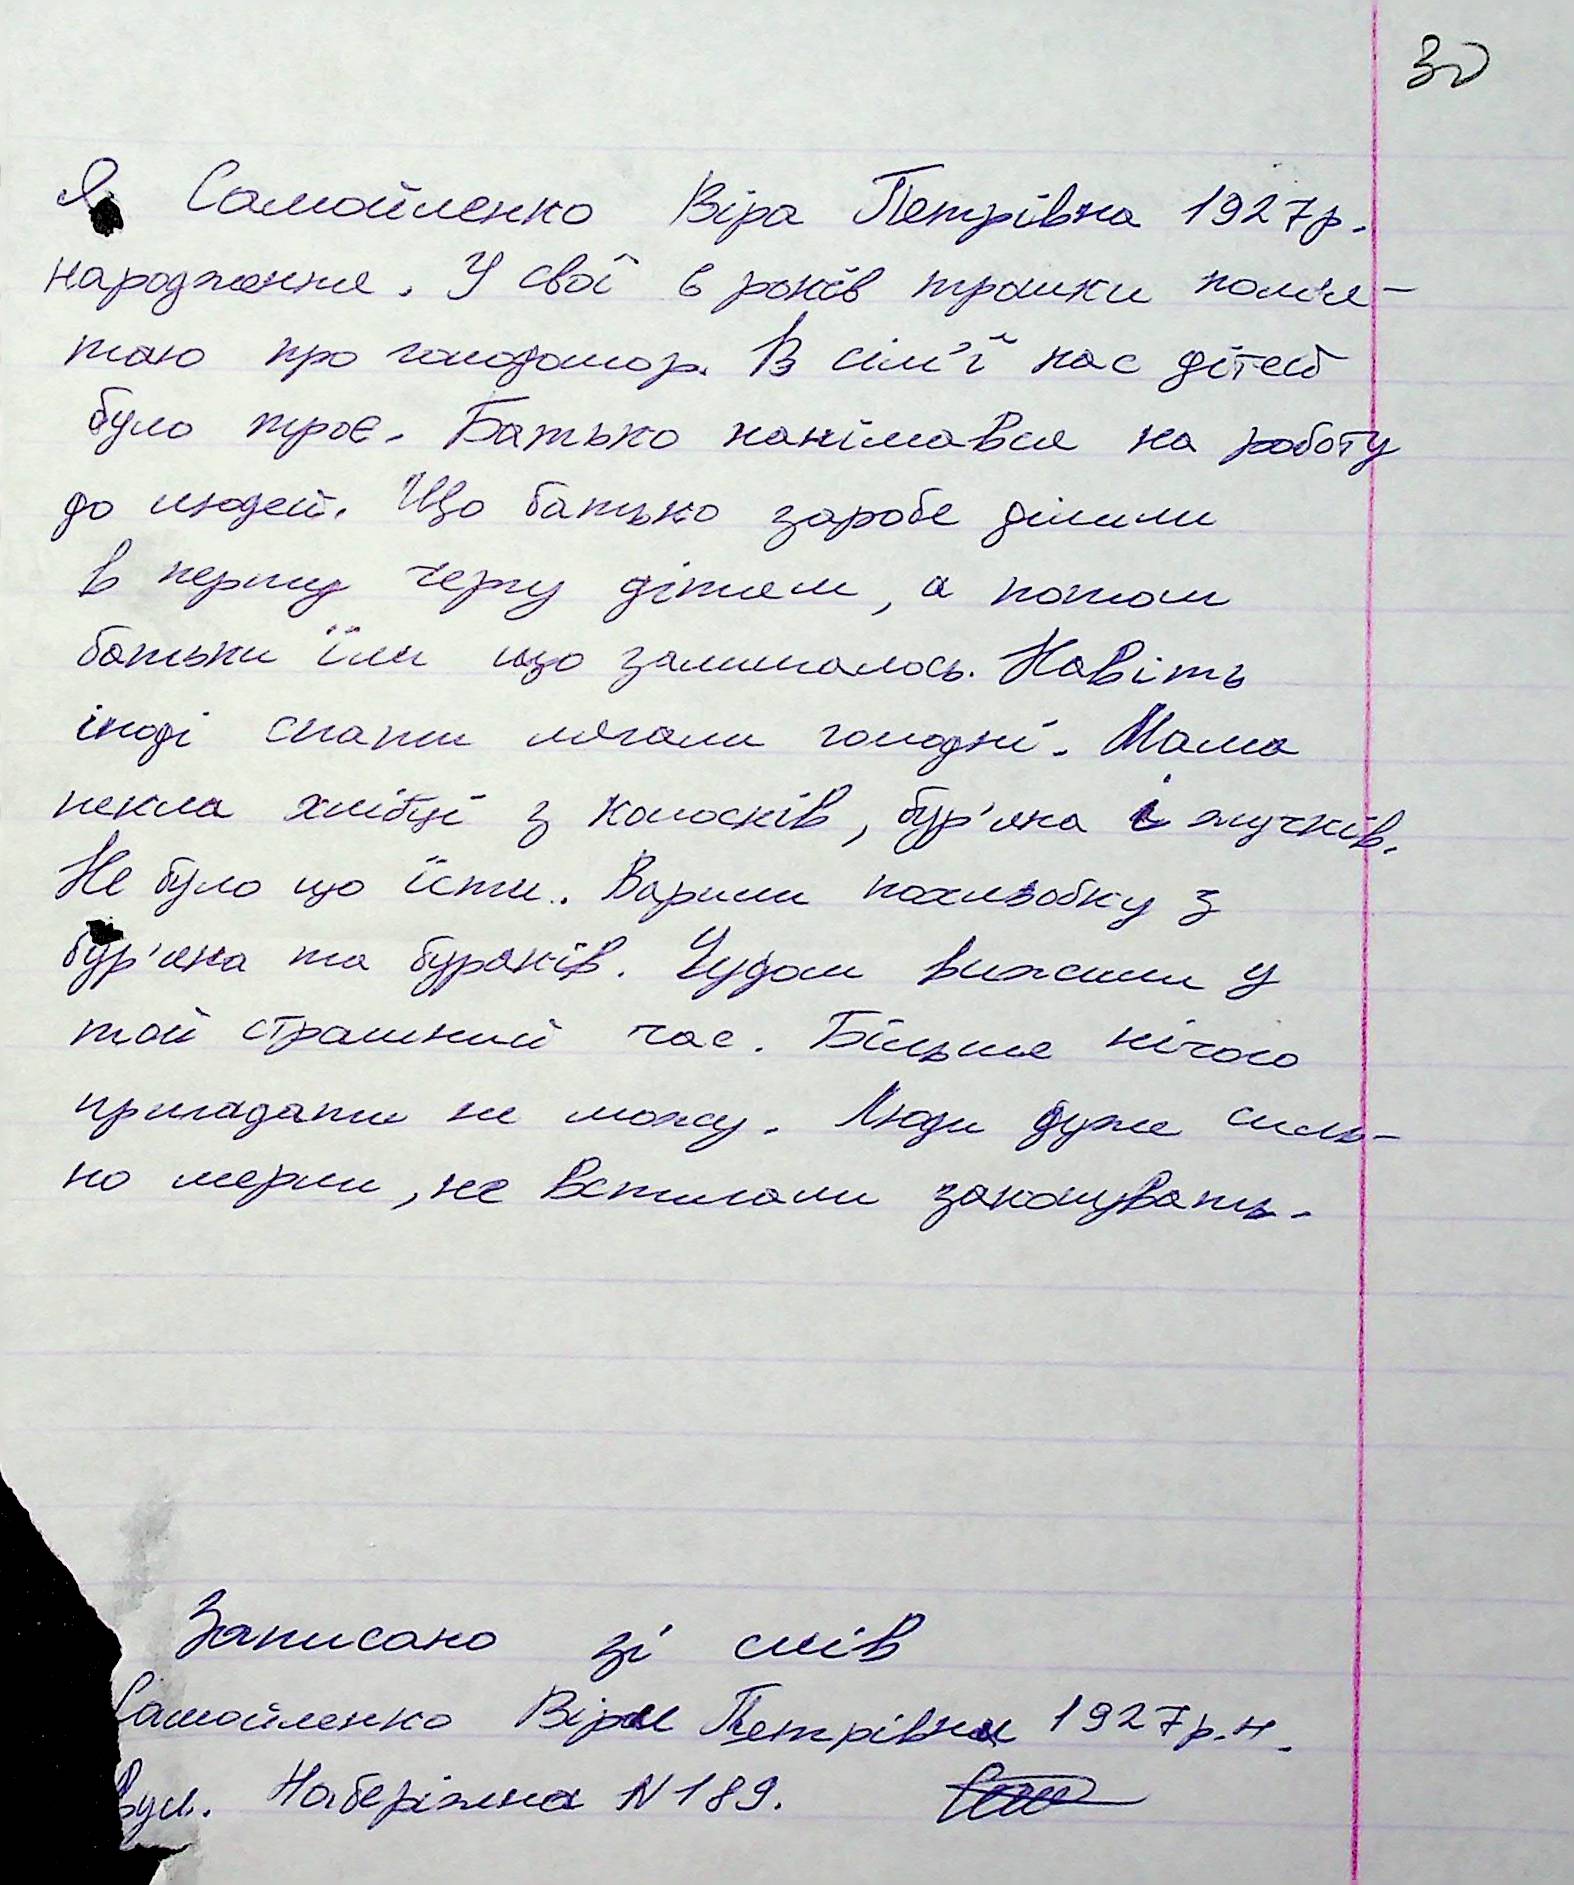 30
Я Самойленко Віра Петрівна 1927р.
народження. У свої 6 років трошки пам'я-
таю про голодомор. В сім'ї нас дітей
було троє. Батько нанімався на роботу
до людей. Що батько заробе ділили
в першу чергу дітям, а потом
батьки їли що залишалось. Навіть
іноді спати лягали голодні. Мама
пекла хлібці з колосків, бур'яна і жучків.
Не було що їсти. Варили похльобку з
бур'яна та буряків. Чудом вижили у
той страшний час. Більше нічого
пригадати не можу. Люди дуже силь-
но мерли, не встигали закопувать.
Записано зі слів
Самойленко Віри Петрівни 1927р.н.
вул. Набережна N 189.